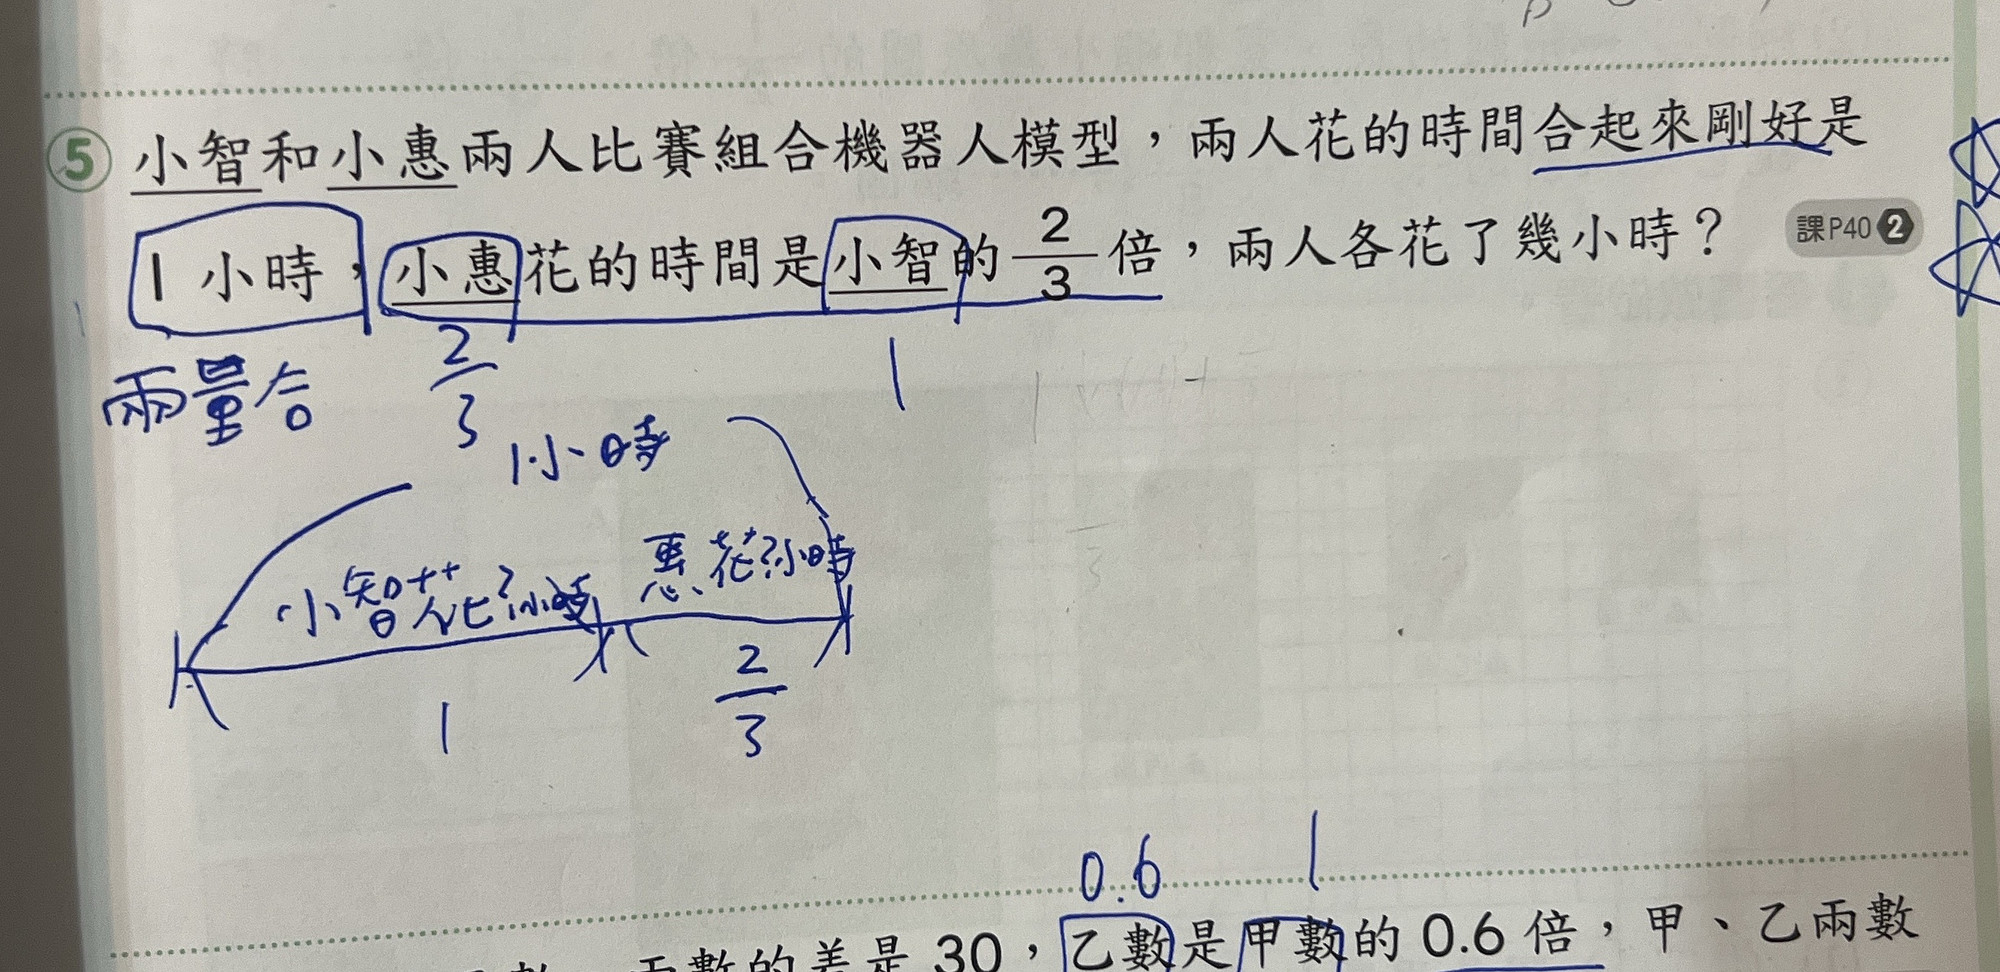 5 小智和小惠兩人比賽組合機器人模型，兩人花的時間合起來剛好是
1 小時，小惠花的時間是小智的 2/3 倍，兩人各花了幾小時？ 課P40 2
兩量合 2/3 1
1小時
小智花?小時 惠花?小時
1 2/3
0.6 1
兩數的差是 30，乙數是甲數的 0.6 倍，甲、乙兩數